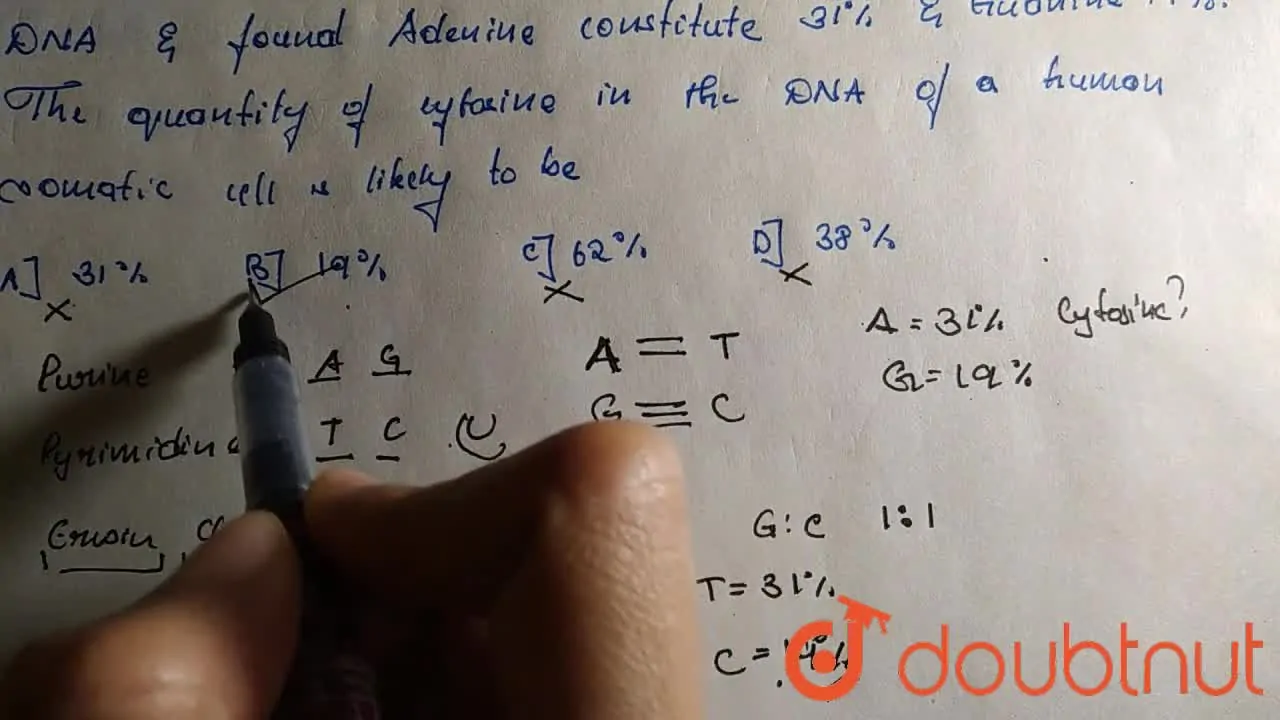 DNA & found Adenine constitute 31% &
The quantity of cytosine in the DNA of a human
soomatic cell is likely to be
A] 31% B] 19% C] 62% D] 38%
A = 31% Cytosine?
G = 19%
Purine A G
A = T
G ≡ C
Pyrimidin T C U
Erwin
G : C 1:1
T = 31%
C =
doubtnut